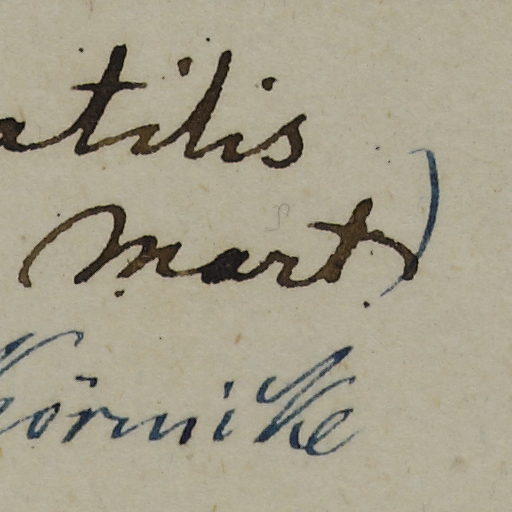 atilis
Mart)
Körnicke